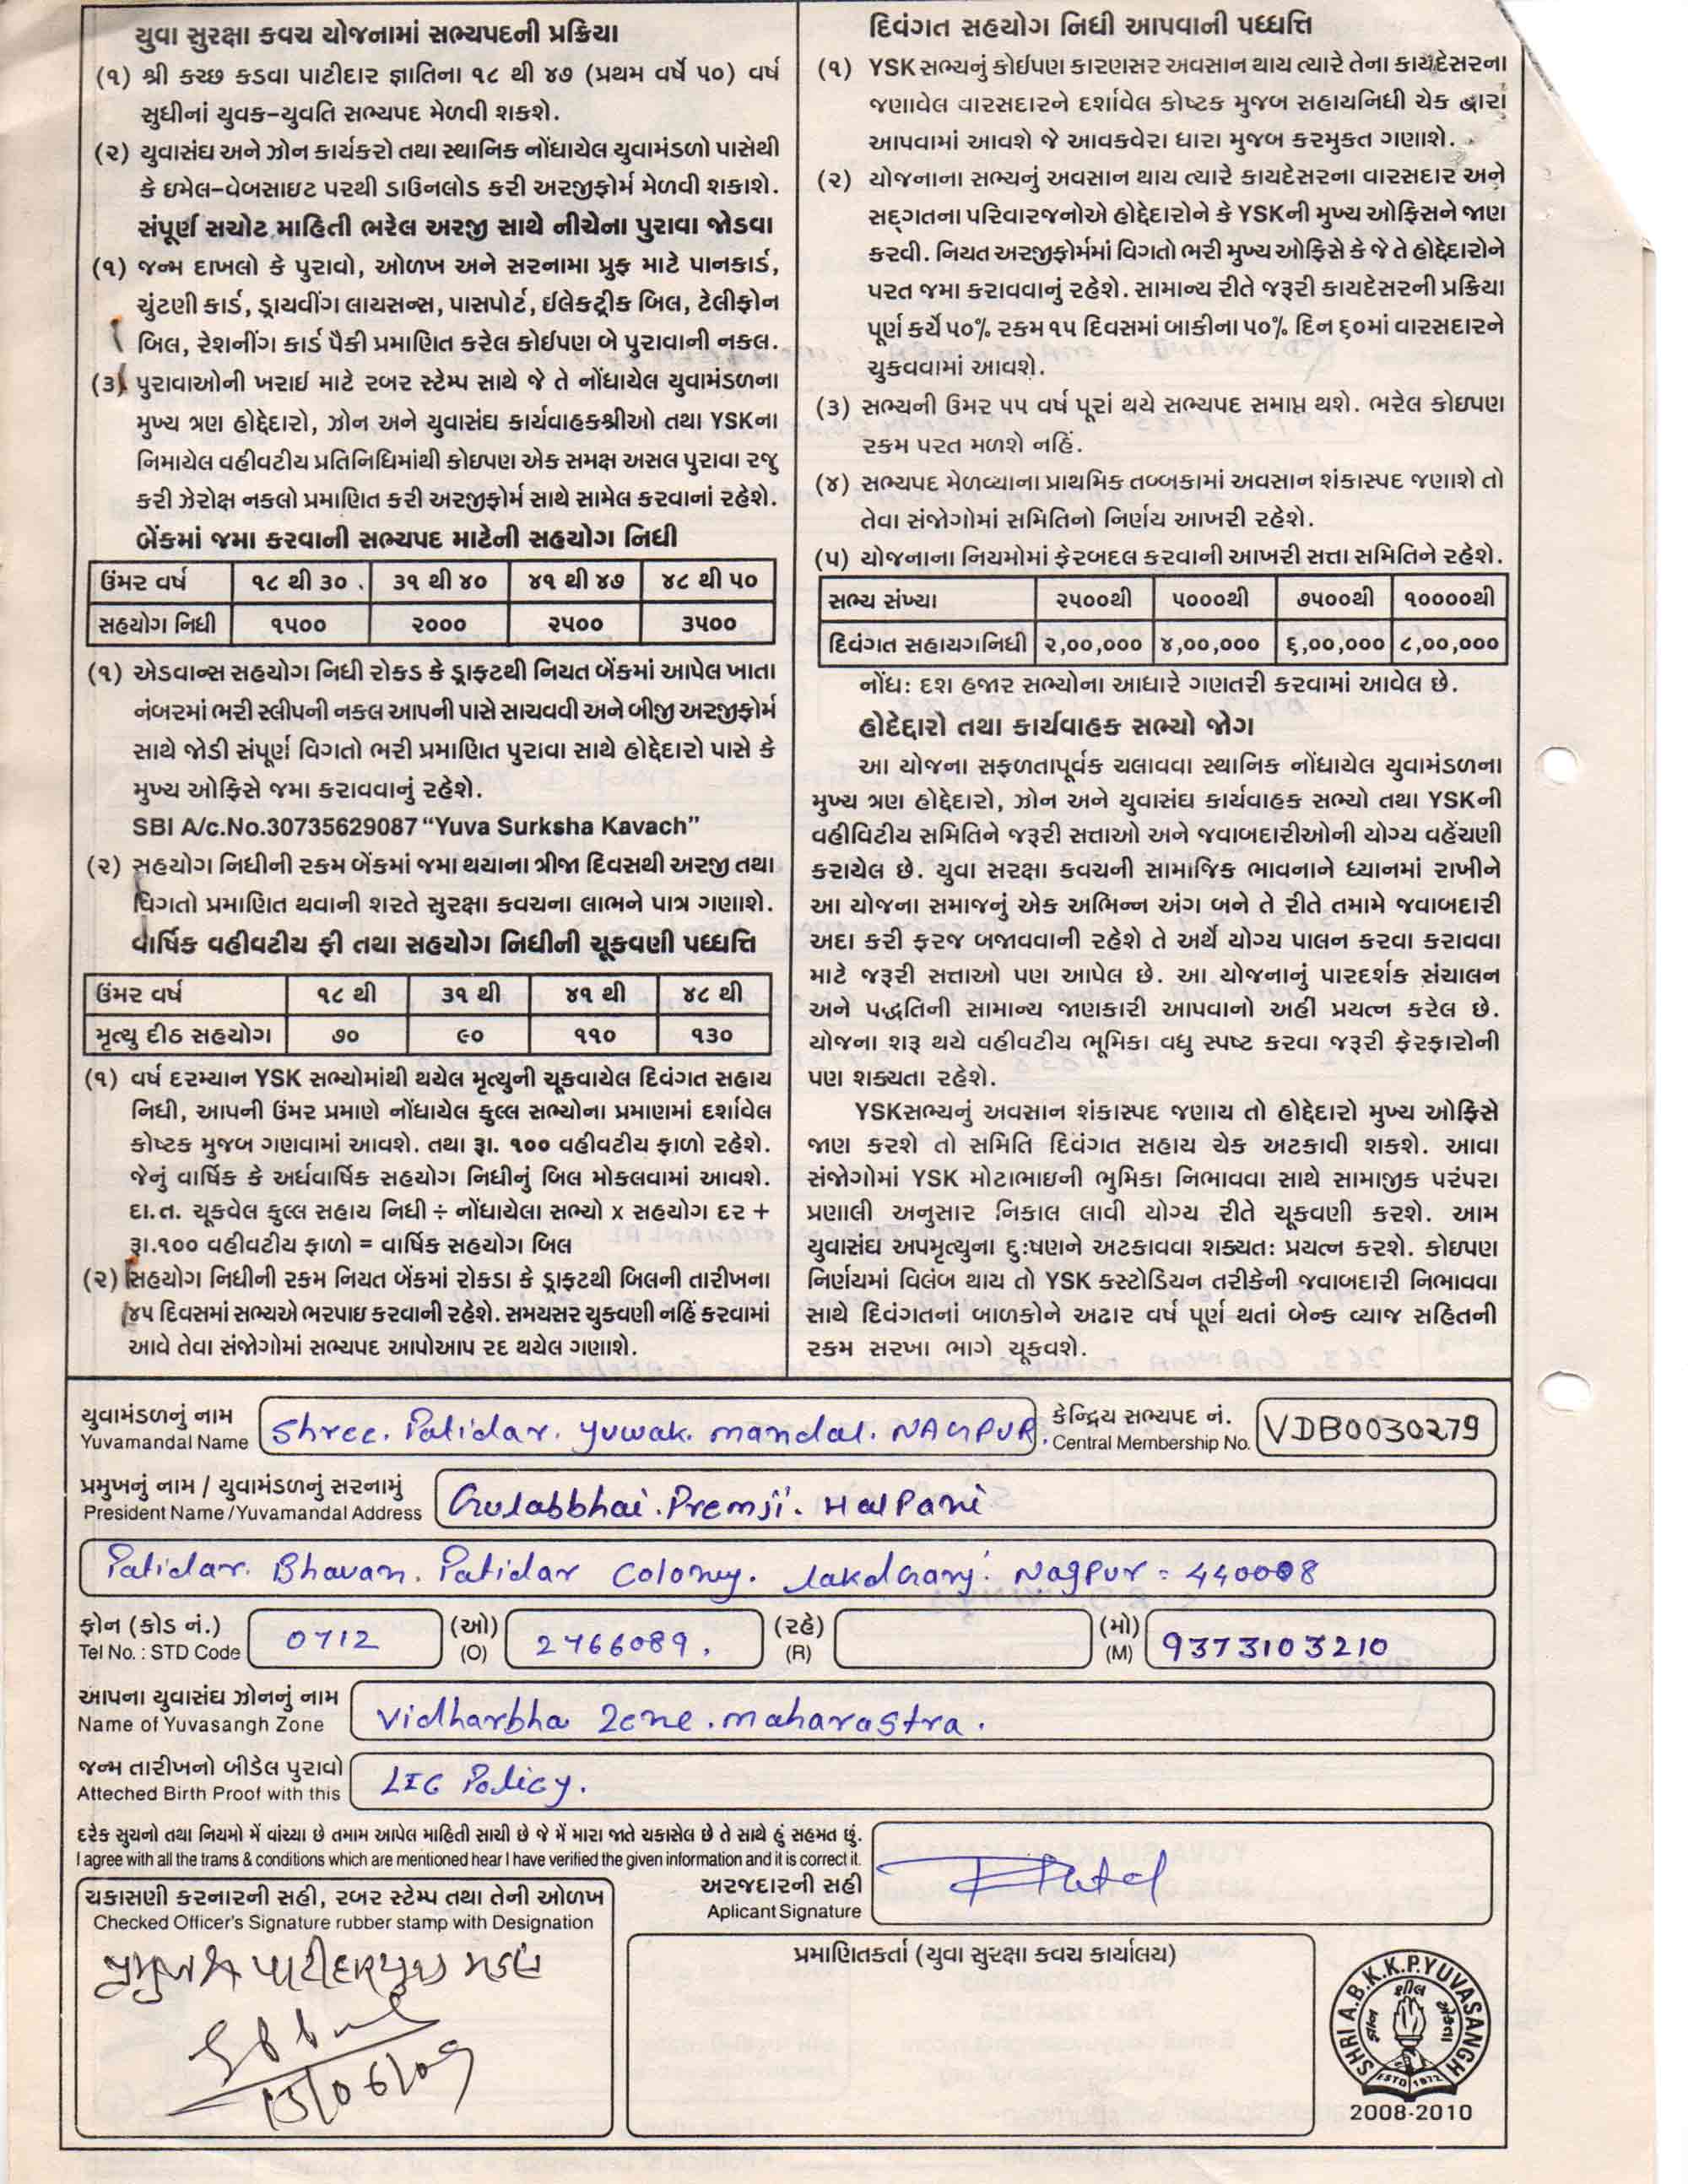 યુવા સુરક્ષા કવચ યોજનામાં સભ્યપદની પ્રક્રિયા
(૧) શ્રી કચ્છ કડવા પાટીદાર જ્ઞાતિના ૧૮ થી ૪૭ (પ્રથમ વર્ષે ૫૦) વર્ષ
સુધીનાં યુવક-યુવતિ સભ્યપદ મેળવી શકશે.
(૨) યુવાસંઘ અને ઝોન કાર્યકરો તથા સ્થાનિક નોંધાયેલ યુવામંડળો પાસેથી
કે ઇમેલ-વેબસાઇટ પરથી ડાઉનલોડ કરી અરજીફોર્મ મેળવી શકાશે.
સંપૂર્ણ સચોટ માહિતી ભરેલ અરજી સાથે નીચેના પુરાવા જોડવા
(૧) જન્મ દાખલો કે પુરાવો, ઓળખ અને સરનામા પ્રુફ માટે પાનકાર્ડ,
ચુંટણી કાર્ડ, ડ્રાયવીંગ લાયસન્સ, પાસપોર્ટ, ઈલેક્ટ્રીક બિલ, ટેલીફોન
બિલ, રેશનીંગ કાર્ડ પૈકી પ્રમાણિત કરેલ કોઈપણ બે પુરાવાની નકલ.
(૩) પુરાવાઓની ખરાઇ માટે રબર સ્ટેમ્પ સાથે જે તે નોંધાયેલ યુવામંડળના
મુખ્ય ત્રણ હોદ્દેદારો, ઝોન અને યુવાસંઘ કાર્યવાહકશ્રીઓ તથા YSKના
નિમાયેલ વહીવટીય પ્રતિનિધિમાંથી કોઇપણ એક સમક્ષ અસલ પુરાવા રજુ
કરી ઝેરોક્ષ નકલો પ્રમાણિત કરી અરજીફોર્મ સાથે સામેલ કરવાનાં રહેશે.
બેંકમાં જમા કરવાની સભ્યપદ માટેની સહયોગ નિધી
ઉંમર વર્ષ ૧૮ થી ૩૦ ૩૧ થી ૪૦ ૪૧ થી ૪૭ ૪૮ થી ૫૦
સહયોગ નિધી ૧૫૦૦ ૨૦૦૦ ૨૫૦૦ ૩૫૦૦
(૧) એડવાન્સ સહયોગ નિધી રોકડ કે ડ્રાફટથી નિયત બેંકમાં આપેલ ખાતા
નંબરમાં ભરી સ્લીપની નકલ આપની પાસે સાચવવી અને બીજી અરજીફોર્મ
સાથે જોડી સંપૂર્ણ વિગતો ભરી પ્રમાણિત પુરાવા સાથે હોદ્દેદારો પાસે કે
મુખ્ય ઓફિસે જમા કરાવવાનું રહેશે.
SBI A/c.No.30735629087 “Yuva Surksha Kavach”
(૨) સહયોગ નિધીની રકમ બેંકમાં જમા થયાના ત્રીજા દિવસથી અરજી તથા
વિગતો પ્રમાણિત થવાની શરતે સુરક્ષા કવચના લાભને પાત્ર ગણાશે.
વાર્ષિક વહીવટીય ફી તથા સહયોગ નિધીની ચૂકવણી પધ્ધતિ
ઉંમર વર્ષ ૧૮ થી ૩૧ થી ૪૧ થી ૪૮ થી
મૃત્યુ દીઠ સહયોગ ૭૦ ૯૦ ૧૧૦ ૧૩૦
(૧) વર્ષ દરમ્યાન YSK સભ્યોમાંથી થયેલ મૃત્યુની ચૂકવાયેલ દિવંગત સહાય
નિધી, આપની ઉંમર પ્રમાણે નોંધાયેલ કુલ્લ સભ્યોના પ્રમાણમાં દર્શાવેલ
કોષ્ટક મુજબ ગણવામાં આવશે. તથા રૂા. ૧૦૦ વહીવટીય ફાળો રહેશે.
જેનું વાર્ષિક કે અર્ધવાર્ષિક સહયોગ નિધીનું બિલ મોકલવામાં આવશે.
દા.ત. ચૂકવેલ કુલ્લ સહાય નિધી ÷ નોંધાયેલા સભ્યો x સહયોગ દર +
રૂા.૧૦૦ વહીવટીય ફાળો = વાર્ષિક સહયોગ બિલ
(૨) સહયોગ નિધીની રકમ નિયત બેંકમાં રોકડા કે ડ્રાફટથી બિલની તારીખના
૪૫ દિવસમાં સભ્યએ ભરપાઇ કરવાની રહેશે. સમયસર ચુકવણી નહિં કરવામાં
આવે તેવા સંજોગોમાં સભ્યપદ આપોઆપ રદ થયેલ ગણાશે.
દિવંગત સહયોગ નિધી આપવાની પધ્ધત્તિ
(૧) YSK સભ્યનું કોઈપણ કારણસર અવસાન થાય ત્યારે તેના કાયદેસરના
જણાવેલ વારસદારને દર્શાવેલ કોષ્ટક મુજબ સહાયનિધી ચેક દ્વારા
આપવામાં આવશે જે આવકવેરા ધારા મુજબ કરમુકત ગણાશે.
(૨) યોજનાના સભ્યનું અવસાન થાય ત્યારે કાયદેસરના વારસદાર અને
સદ્ગતના પરિવારજનોએ હોદ્દેદારોને કે YSKની મુખ્ય ઓફિસને જાણ
કરવી. નિયત અરજીફોર્મમાં વિગતો ભરી મુખ્ય ઓફિસે કે જે તે હોદ્દેદારોને
પરત જમા કરાવવાનું રહેશે. સામાન્ય રીતે જરૂરી કાયદેસરની પ્રક્રિયા
પૂર્ણ કર્યે ૫૦% રકમ ૧૫ દિવસમાં બાકીના ૫૦% દિન ૬૦માં વારસદારને
ચુકવવામાં આવશે.
(૩) સભ્યની ઉમર ૫૫ વર્ષ પૂરાં થયે સભ્યપદ સમાપ્ત થશે. ભરેલ કોઇપણ
રકમ પરત મળશે નહિં.
(૪) સભ્યપદ મેળવ્યાના પ્રાથમિક તબ્બકામાં અવસાન શંકાસ્પદ જણાશે તો
તેવા સંજોગોમાં સમિતિનો નિર્ણય આખરી રહેશે.
(૫) યોજનાના નિયમોમાં ફેરબદલ કરવાની આખરી સત્તા સમિતિને રહેશે.
સભ્ય સંખ્યા ૨૫૦૦થી ૫૦૦૦થી ૭૫૦૦થી ૧૦૦૦૦થી
દિવંગત સહાયગનિધી ૨,૦૦,૦૦૦ ૪,૦૦,૦૦૦ ૬,૦૦,૦૦૦ ૮,૦૦,૦૦૦
નોંધઃ દશ હજાર સભ્યોના આધારે ગણતરી કરવામાં આવેલ છે.
હોદેદ્દારો તથા કાર્યવાહક સભ્યો જોગ
આ યોજના સફળતાપૂર્વક ચલાવવા સ્થાનિક નોંધાયેલ યુવામંડળના
મુખ્ય ત્રણ હોદ્દેદારો, ઝોન અને યુવાસંઘ કાર્યવાહક સભ્યો તથા YSKની
વહીવિટીય સમિતિને જરૂરી સત્તાઓ અને જવાબદારીઓની યોગ્ય વહેંચણી
કરાયેલ છે. યુવા સરક્ષા કવચની સામાજિક ભાવનાને ધ્યાનમાં રાખીને
આ યોજના સમાજનું એક અભિન્ન અંગ બને તે રીતે તમામે જવાબદારી
અદા કરી ફરજ બજાવવાની રહેશે તે અર્થે યોગ્ય પાલન કરવા કરાવવા
માટે જરૂરી સત્તાઓ પણ આપેલ છે. આ યોજનાનું પારદર્શક સંચાલન
અને પદ્ધતિની સામાન્ય જાણકારી આપવાનો અહીં પ્રયત્ન કરેલ છે.
યોજના શરૂ થયે વહીવટીય ભૂમિકા વધુ સ્પષ્ટ કરવા જરૂરી ફેરફારોની
પણ શક્યતા રહેશે.
YSKસભ્યનું અવસાન શંકાસ્પદ જણાય તો હોદ્દેદારો મુખ્ય ઓફિસે
જાણ કરશે તો સમિતિ દિવંગત સહાય ચેક અટકાવી શકશે. આવા
સંજોગોમાં YSK મોટાભાઇની ભુમિકા નિભાવવા સાથે સામાજીક પરંપરા
પ્રણાલી અનુસાર નિકાલ લાવી યોગ્ય રીતે ચૂકવણી કરશે. આમ
યુવાસંઘ અપમૃત્યુના દુઃષણને અટકાવવા શક્યતઃ પ્રયત્ન કરશે. કોઇપણ
નિર્ણયમાં વિલંબ થાય તો YSK કસ્ટોડિયન તરીકેની જવાબદારી નિભાવવા
સાથે દિવંગતનાં બાળકોને અઢાર વર્ષ પૂર્ણ થતાં બેન્ક વ્યાજ સહિતની
રકમ સરખા ભાગે ચૂકવશે.
યુવામંડળનું નામ
Yuvamandal Name Shree. Patidar. yuwak. mandal. NAGPUR.
કેન્દ્રિય સભ્યપદ નં.
Central Membership No. VDB0030279
પ્રમુખનું નામ / યુવામંડળનું સરનામું
President Name /Yuvamandal Address Gulabbhai. Premji. Halpani
Patidar. Bhavan. Patidar Colony. Lakdganj. Nagpur = 440008
ફોન (કોડ નં.) (ઓ) (રહે) (મો)
Tel No. : STD Code 0712 (O) 2766089. (R) (M) 9373103210
આપના યુવાસંઘ ઝોનનું નામ
Name of Yuvasangh Zone Vidharbha Zone. maharastra.
જન્મ તારીખનો બીડેલ પુરાવો
Atteched Birth Proof with this LIC Policy.
દરેક સુચનો તથા નિયમો મેં વાંચ્યા છે તમામ આપેલ માહિતી સાચી છે જે મેં મારા જાતે ચકાસેલ છે તે સાથે હું સહમત છું.
I agree with all the trams & conditions which are mentioned hear I have verified the given information and it is correct it.
અરજદારની સહી
Aplicant Signature
ચકાસણી કરનારની સહી, રબર સ્ટેમ્પ તથા તેની ઓળખ
Checked Officer's Signature rubber stamp with Designation
15/06/09
પ્રમાણિતકર્તા (યુવા સુરક્ષા કવચ કાર્યાલય)
SHRI A.B.K.K.P.YUVASANGH
ESTD 1972
2008-2010